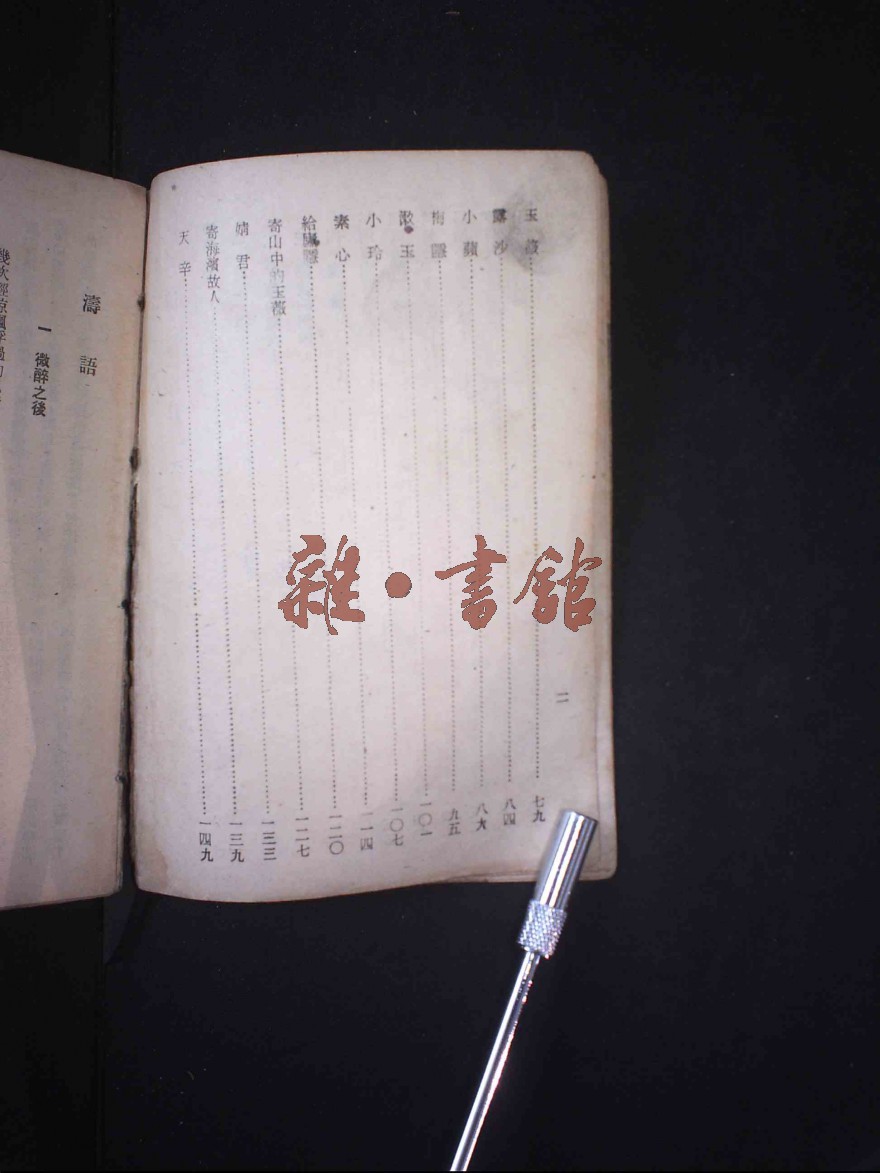 玉薇⋯⋯七九
露沙⋯⋯八四
小蘋⋯⋯八九
梅隱⋯⋯九五
漱玉⋯⋯一〇一
小玲⋯⋯一〇七
素心⋯⋯一一四
給廬隱⋯⋯一二〇
寄山中的玉薇⋯⋯一二七
婧君⋯⋯一三三
寄海濱故人⋯⋯一三九
天辛⋯⋯一四九
二
濤語
一 微醉之後
雜・書館